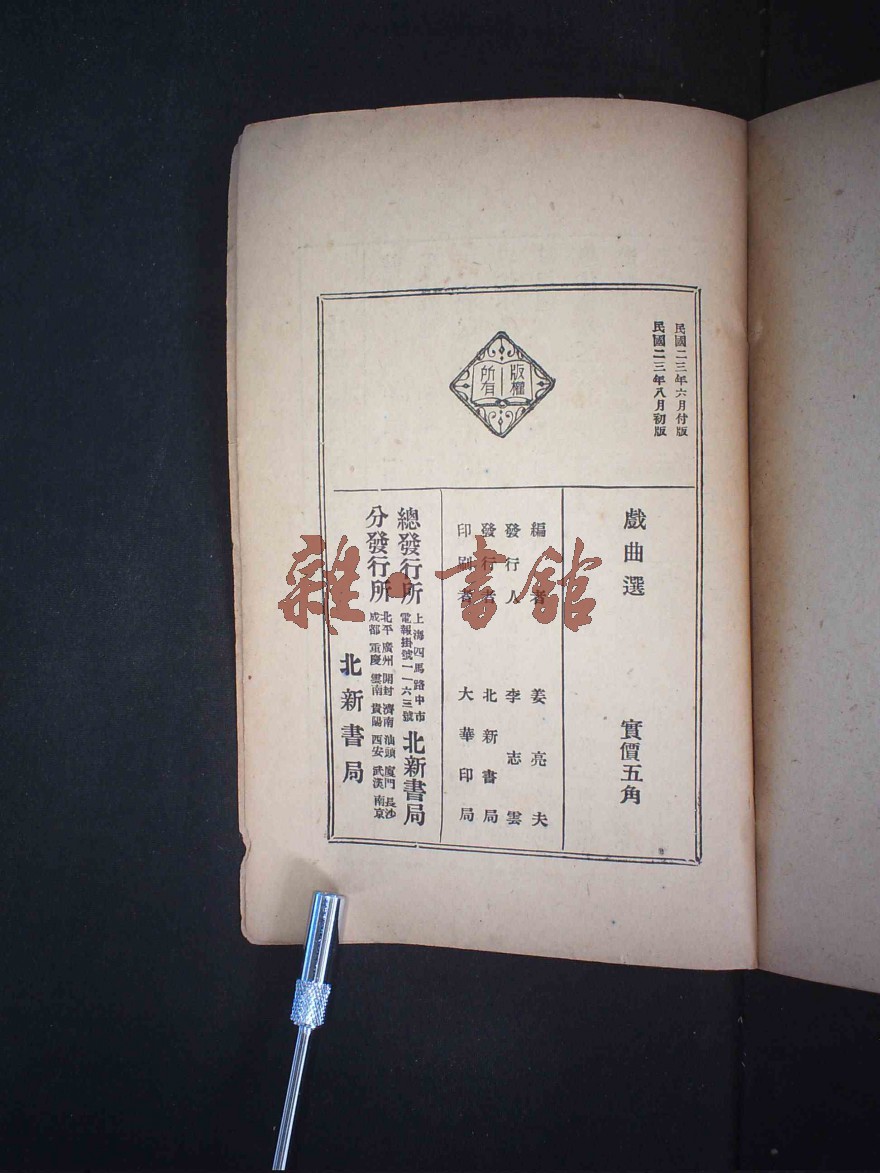 民國二三年六月付版
民國二三年八月初版
版權
所有
戲曲選 實價五角
編者 姜亮夫
發行人 李志雲
發行者 北新書局
印刷者 大華印局
總發行所 上海四馬路中市 電報掛號一一六三號 北新書局
分發行所 北平 廣州 開封 濟南 汕頭 廈門 長沙 成都 重慶 雲南 貴陽 西安 武漢 南京 北新書局
雜·書館